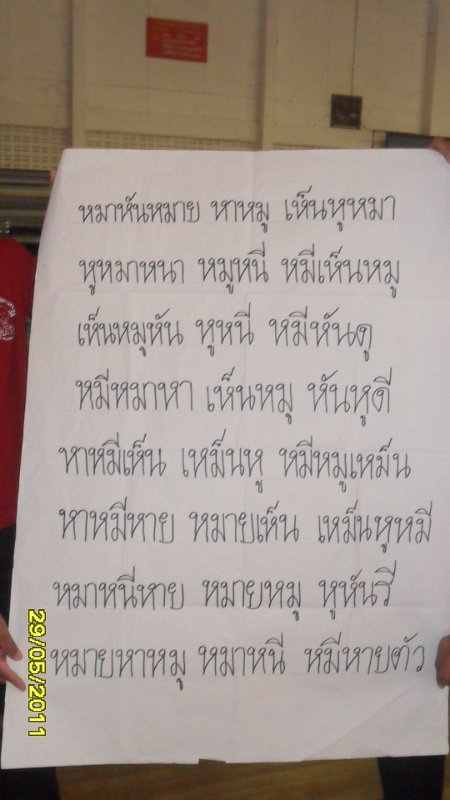 หมาหันหมาย หาหมู เห็นหูหมา
หูหมาหนา หมูหนี่ หมีเห็นหมู
เห็นหมุหัน หูหนี่ หมีหันดู
หมีหมาหา เห็นหมุ หันหูดี
หาหมีเห็น เหม็นหู หมีหมูเหม็น
หาหมีหาย หมายเห็น เหม็นหูหมี
หมาหนีหาย หมายหมุ หูหันรี
หมายหาหมุ หมาหนี หมีหายตัว
29/05/2011